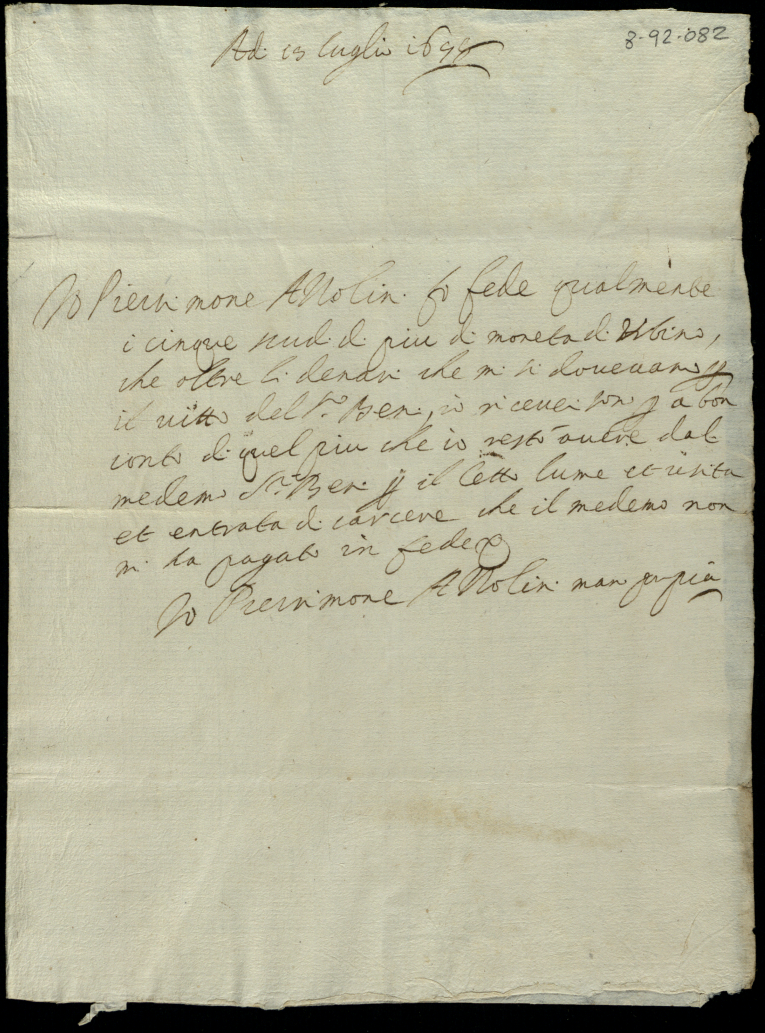 8-92-082
Ad: 13 luglio 1699
Io Piersimone Attolin: fo fede qualmente
i cinque scudi di piu di moneta d'Urbino,
che oltre li denari che mi si dovevano p
il vitto del Sr. Ben:, io ricevei son p a bon
conto di quel piu che io resto avere dal
medemo Sr. Ben: p il letto lume et usita
et entrata di carcere che il medemo non
mi ha pagato in fede
Io Piersimone Attolin: man propia